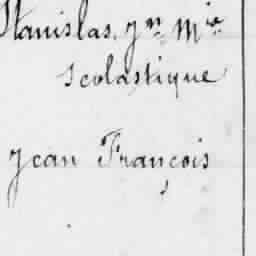 Stanislas. Jn Mie
Scolastique
Jean François